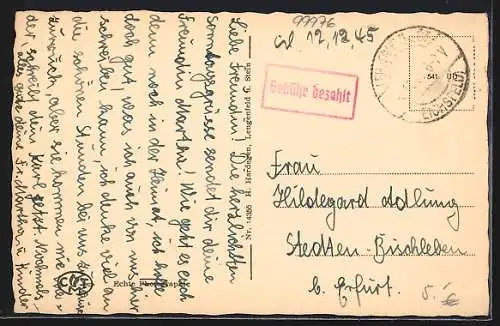 99776
12.12.45
Gebühr bezahlt
EICHSFELD
Liebe Freundin! Die herzlichsten
Sonntagsgrüsse sendet dir deine
Freundin Martha! Wie geht es euch
doch noch in der Heimat, ich hoffe
doch gut, was ich auch von uns hier
schreiben kann, ich denke viel an
die schönen Stunden bei uns
zurück, aber sie kommen nie
der schreibt dein Karl jetzt. Nochmals
alles gute deine Fr. Martha u. Kinder
Nr. 14356 H. Hardegen, Lengenfeld U. Stein
Echte Photographie
Frau
Hildegard Adlung
Stedten-Bischleben
b. Erfurt.
5.- €